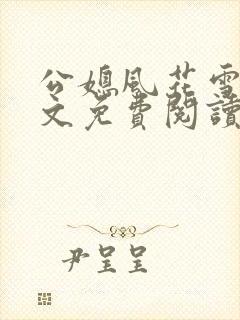 公媳風花雪
文免費閱讀
尹呈呈